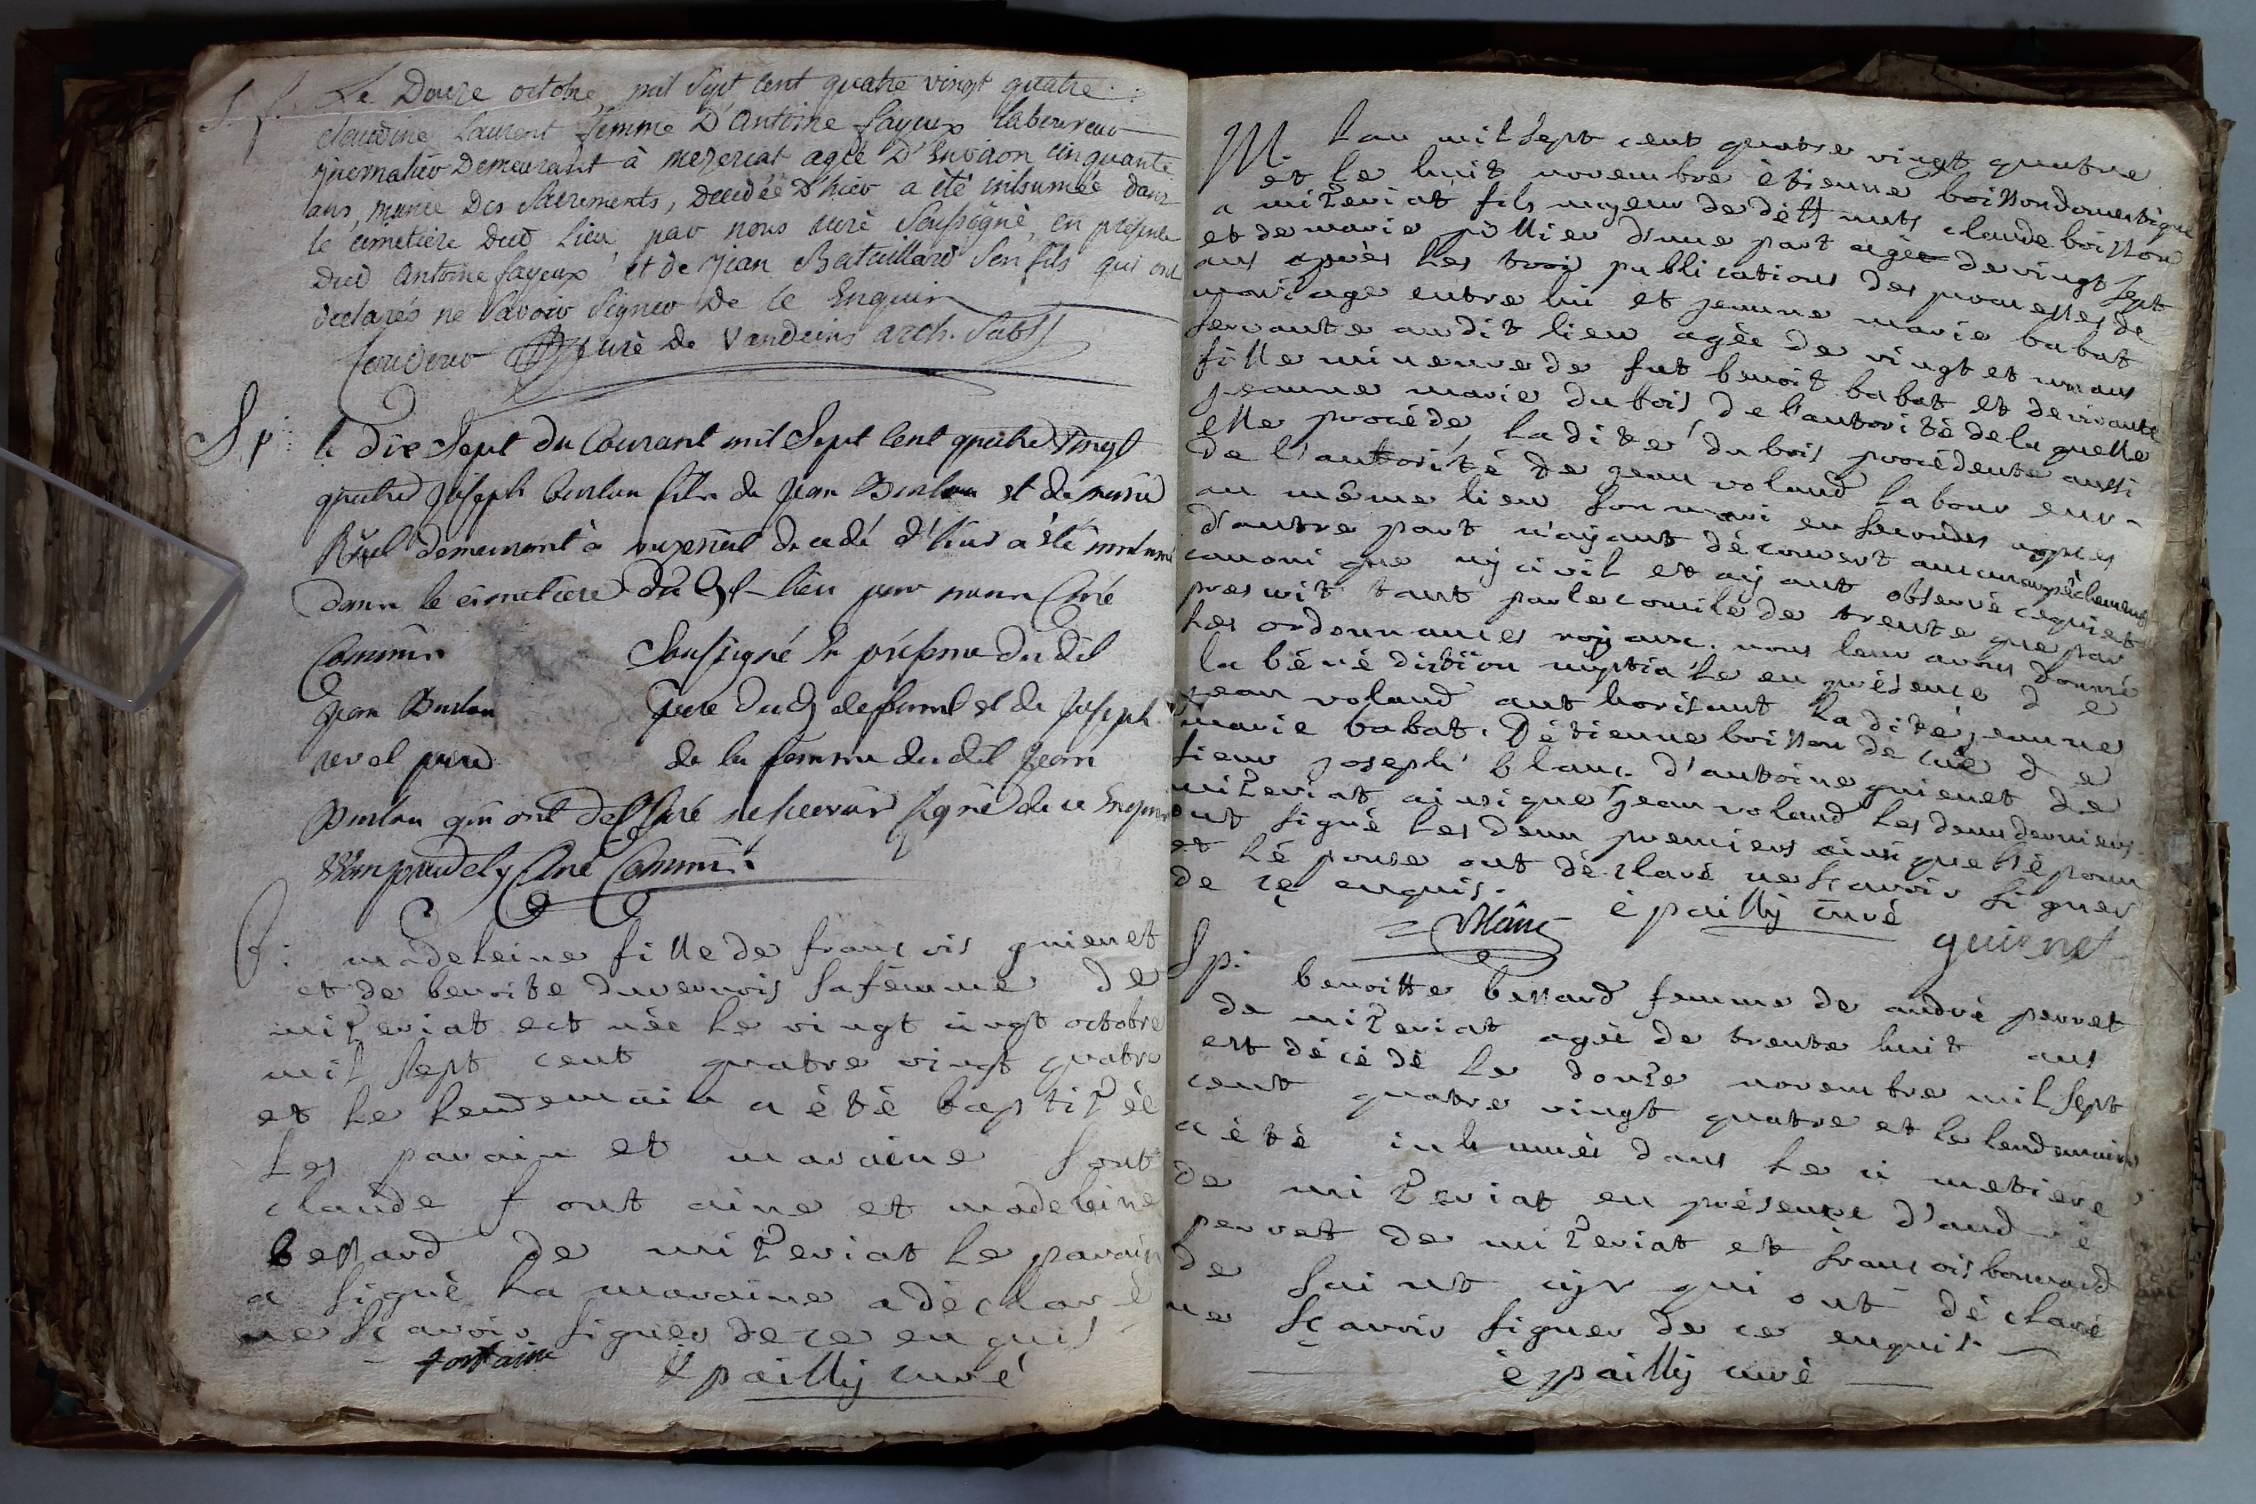 S. f. Le Douze octobre mil sept cent quatre vingt quatre
claudine Laurent femme D'Antoine fayeux laboureur
journalier Demeurant à mezeriat agée D'Environ cinquante
ans, munie Des Sacrements, decedée D'hier a été inhumée dans
le cimetiere Dud lieu par nous curé Soussigné, en presence
Dud Antoine fayeux et de jean Bataillard Son fils qui ont
declarés ne Savoir Signer De ce Enquis
curé de Vandeins arch. Subst
Sp. le dix Sept du Courant mil Sept Cent quatre Vingt
quatre joseph burlon fils de jean Burlon et de marie
demeurant à decedé d'hier a été inhumé
dans le cimetiere dud lieu par nous Curé
Commis Soussigné En présence du dit
jean Burlon pere dud defunt et de joseph
revel pere de la femme du dit jean
Burlon qui ont déclaré ne scavoir signé de ce Enquis
Curé Commis
B. madeleine fille de francois guienet
et de benoite duvernois sa femme de
mizeriat est née le vingt cinq octobre
mil sept cent quatre vingt quatre
et le lendemain a été baptizée
les parain et maraine sont
claude fontaine et madeleine
bessard de mizeriat le parain
a signé la maraine a déclaré
ne sçavoir signer de ce enquis
fontaine è pailly curé
M. L'an mil sept cent quatre vingt quatre
et le huit novembre étienne boisson domestique
a mizeriat fils majeur de déffunts claude boisson
et de marie pillier d'une part agée de vingt sept
ans après les trois publications des promesses de
mariage entre lui et jeanne marie babat
servante audit lieu agée de vingt et un ans
fille mineure de fut benoit babat et de vivante
jeanne marie dubois de l'autorité de la quelle
elle procéde, la dite dubois procédente aussi
de l'autorité de jean voland laboureur
au même lieu son mari en secondes nopces
d'autre part n'ajant découvert aucun empêchement
canonique nj civil et ajant observé ce qui est
prescrit tant par le concile de trente que par
les ordonnances rojaux. nous leur avons donné
la bénédiction nuptiale en présence de
jean voland authorisant la dite jeanne
marie babat. D'étienne boisson de cué de
sieur joseph blanc d'antoine guienet de
mizeriat ainsi que jean voland les deux derniers
ont signé les deux premiers ainsi que l'époux
et l'épouse ont déclaré ne sçavoir signer
de ce enquis.
Blanc è pailly curé guienet
Sp. benoitte bessard femme de andré perret
de mizeriat agée de trente huit ans
est décédé le douze novembre mil sept
cent quatre vingt quatre et le lendemain
a été inhumés dans le cimetiere
de mizeriat en présence d'andré
perret de mizeriat et francois bonnard
de saint cijr qui ont déclaré
ne sçavoir signer de ce enquis.
è pailly curé